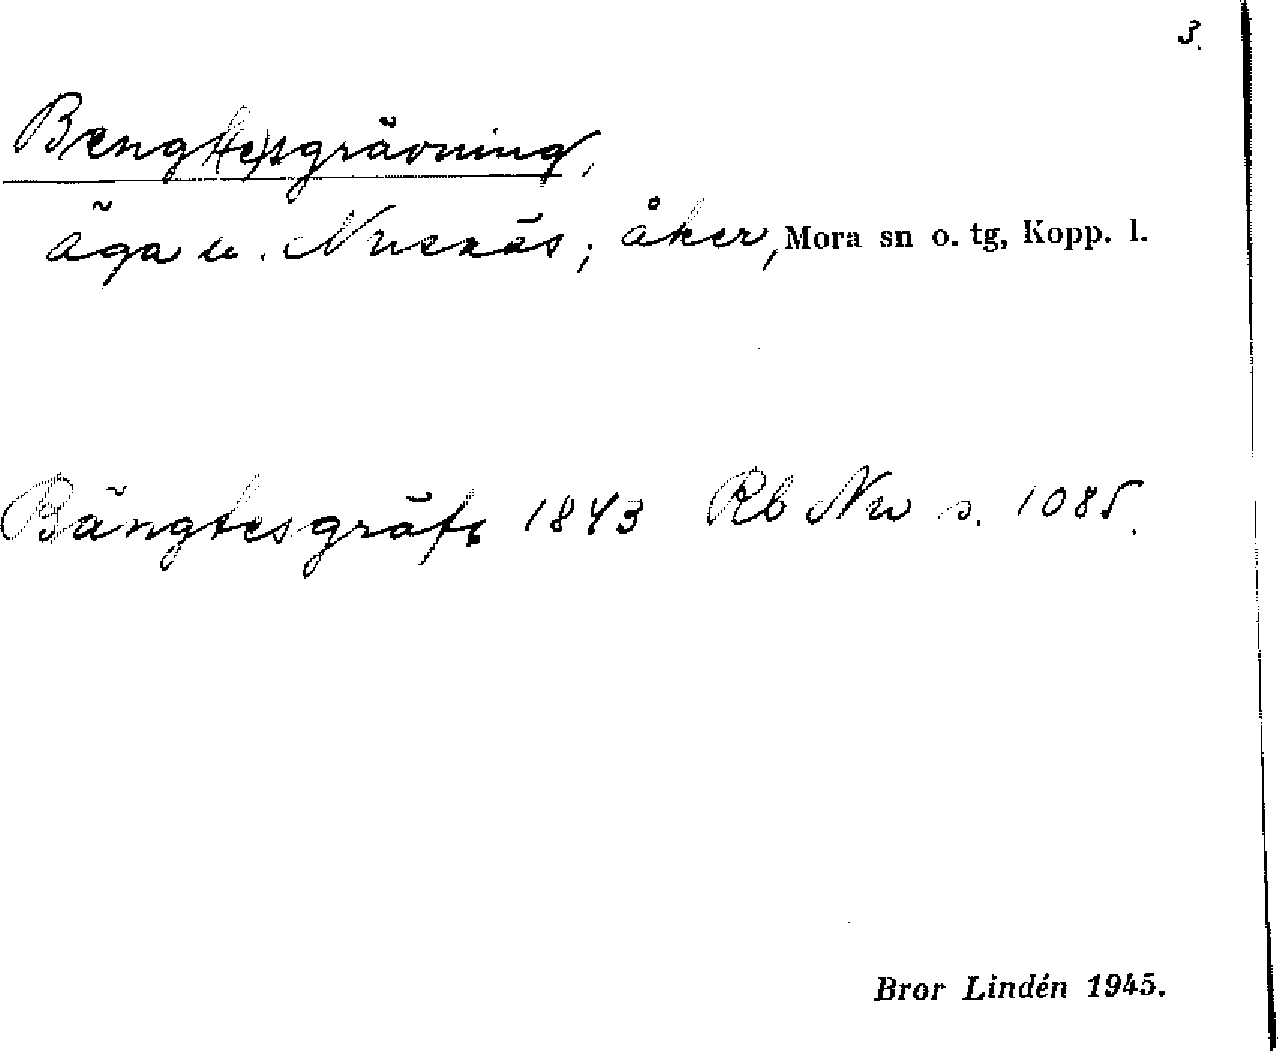 3.
Bengt(e)sgrävning,
äga u. Nusnäs; åker, Mora sn o. tg, Kopp. l.
Bängtesgräfn 1843 Rb Nu s. 1085.
Bror Lindén 1945.